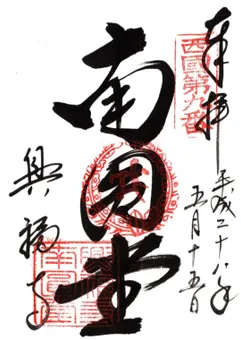 奉拝
平成二十八年
五月十五日
西國第九番
南円堂
興福寺